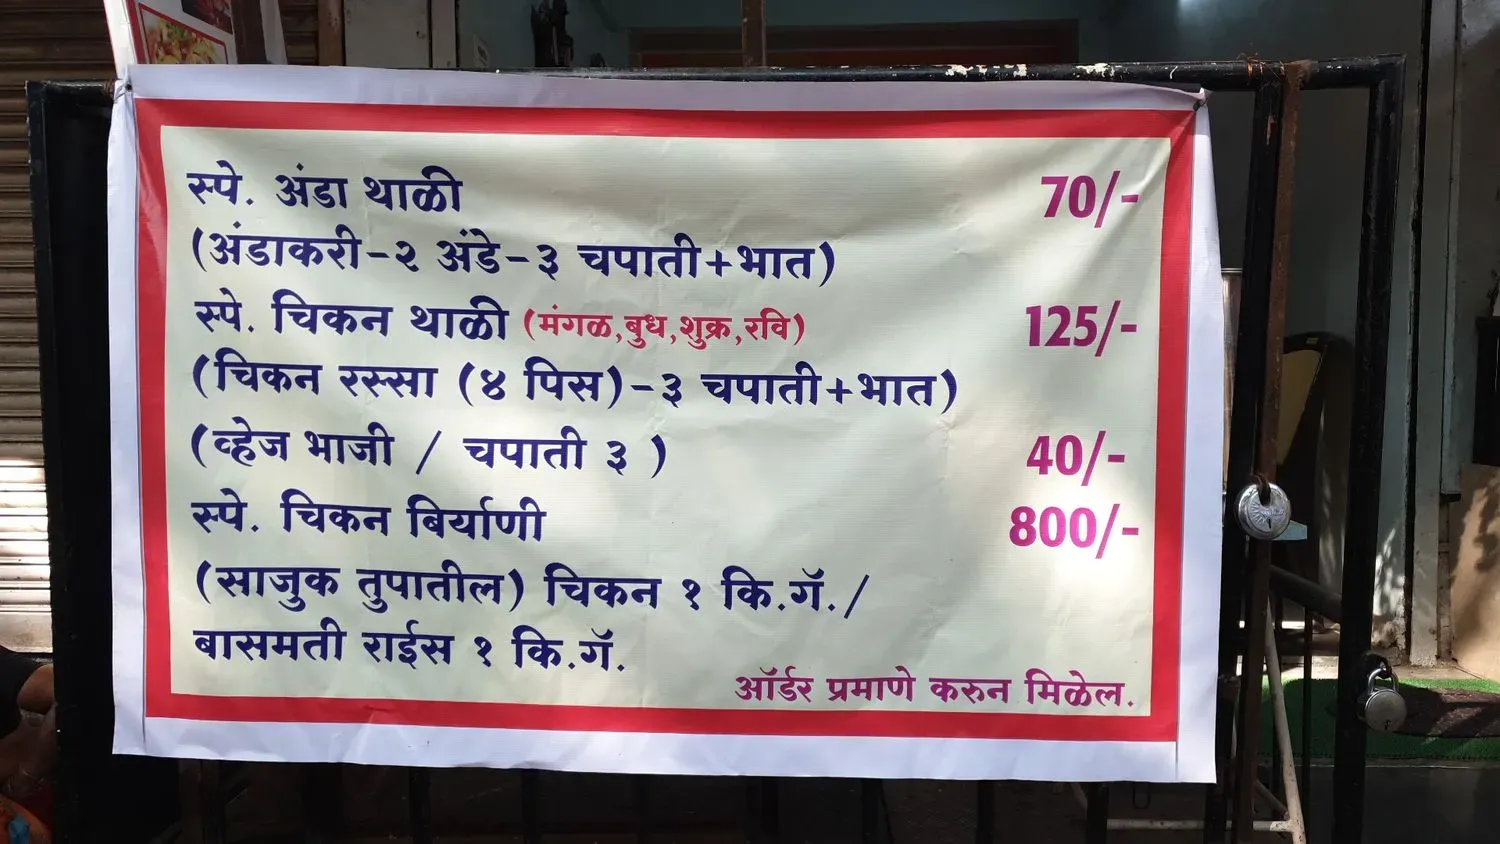 स्पे. अंडा थाळी 70/-
(अंडाकरी-२ अंडे-३ चपाती+भात)
स्पे. चिकन थाळी (मंगळ,बुध,शुक्र,रवि) 125/-
(चिकन रस्सा (४ पिस)-३ चपाती+भात)
(व्हेज भाजी / चपाती ३ ) 40/-
स्पे. चिकन बिर्याणी 800/-
(साजुक तुपातील) चिकन १ कि.गॅ./
बासमती राईस १ कि.गॅ.
ऑर्डर प्रमाणे करुन मिळेल.